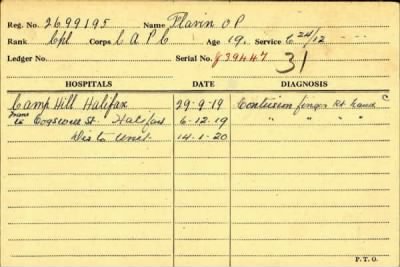 Reg. No. 2699195 Name Flavin O P
Rank Cpl Corps C A P C Age 19. Service 6 24/12
Ledger No. Serial No. J39447 31
HOSPITALS DATE DIAGNOSIS
Camp Hill Halifax 29-9-19 Contusion finger Rt hand C
Trans to Cogswell St. Halifax 6-12-19 " " " "
Dis to Unit 14-1-20
P.T.O.